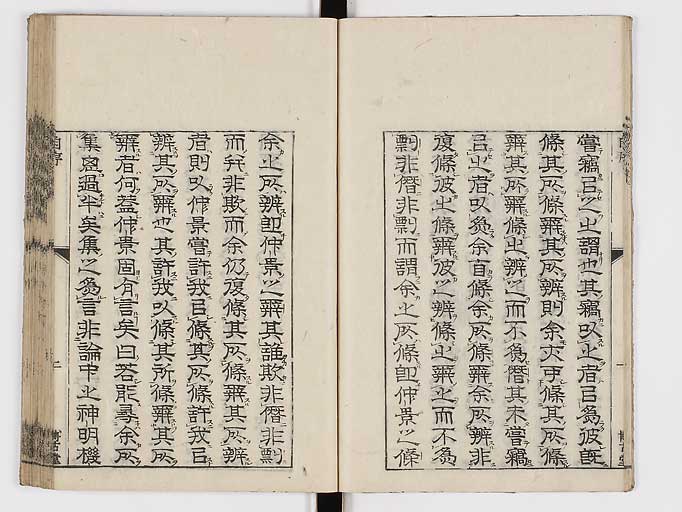 嘗竊㠯之之謂也其竊㕥之者㠯爲彼旣
條其所條辨其所辨則余亦可條其所
辨其所辨條之辨之而不爲僭其未嘗竊
㠯之者㕥爲余自條余所條辨余所辨非
復條彼之條辨彼之辨條之辨之而不爲
剽非僭非剽而謂余之所條卽仲景之條
余之所辨卽仲景之辨其誰欺非僭非剽
而幷非欺而余仍復條其所條辨其所辨
者則㕥仲景嘗許我㠯條其所條許我㠯
辨其所辨也其許我㕥條其所條辨其所
辨者何葢仲景固有言矣曰若能尋余所
集思過半矣集之爲言非論中之神明機
自序
二